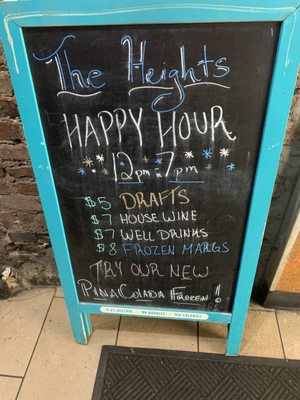 The Heights
HAPPY HOUR
12pm - 7pm
$5 DRAFTS
$7 HOUSE WINE
$7 WELL DRINKS
$8 FROZEN MARGS
TRY OUR NEW
PINA COLADA (FROZEN)!
4.5% ALC/VOL • NO BUBBLES • 100 CALORIES